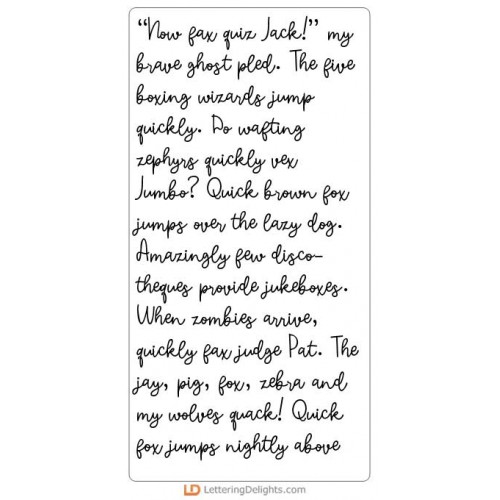 “Now fax quiz Jack!” my
brave ghost pled. The five
boxing wizards jump
quickly. Do wafting
zephyrs quickly vex
Jumbo? Quick brown fox
jumps over the lazy dog.
Amazingly few disco-
theques provide jukeboxes.
When zombies arrive,
quickly fax judge Pat. The
jay, pig, fox, zebra and
my wolves quack! Quick
fox jumps nightly above
LD LetteringDelights.com